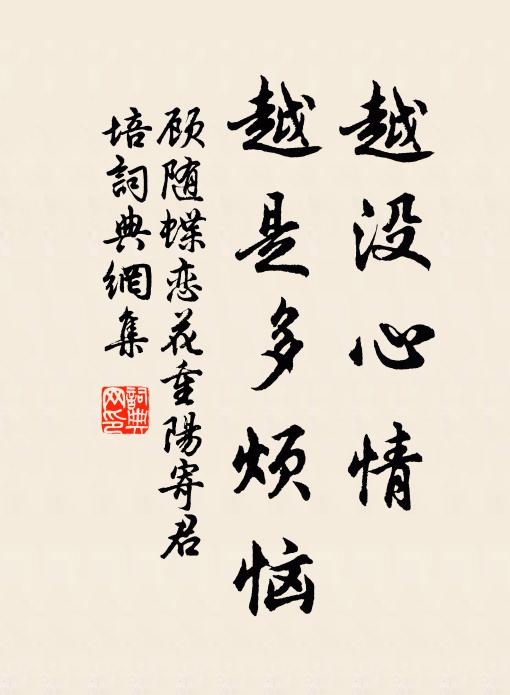 越没心情
越是多烦恼
顾随蝶恋花重陽寄君
培詞典網集
詞典
网印